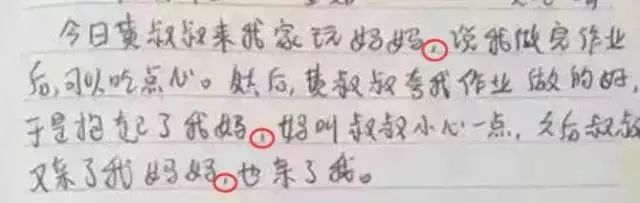 今日黄叔叔来我家玩妈妈，说我做完作业
后，可以吃点心。然后，黄叔叔夸我作业做的好，
于是抱起了我妈，妈叫叔叔小心一点，之后叔叔
又亲了我妈妈，也亲了我。